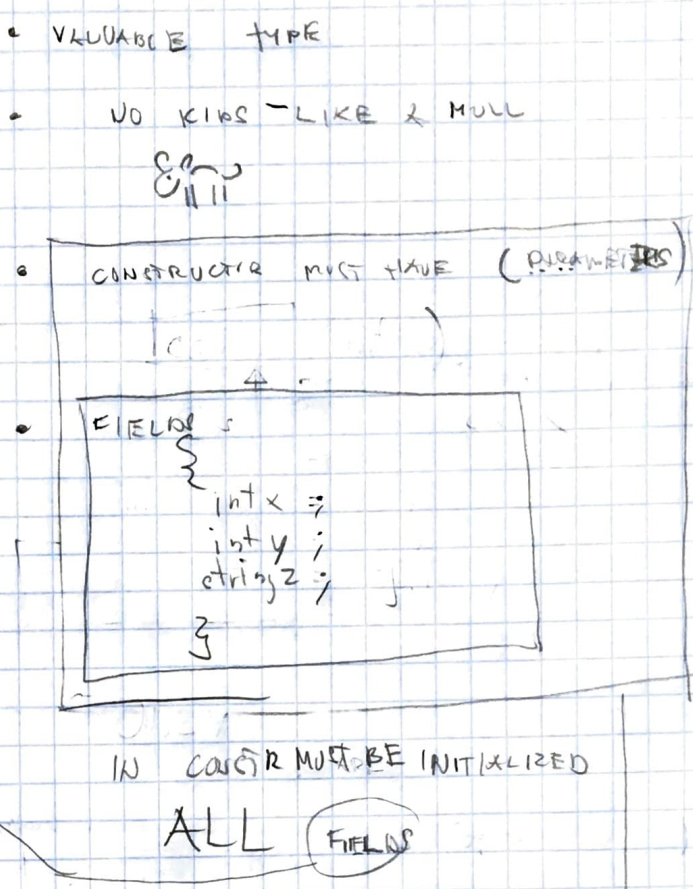 • VALUABLE TYPE
• NO KIDS - LIKE A MULL
• CONSTRUCTOR MUST HAVE (PARAMETERS)
• FIELDS :
{
int x ;
int y ;
string z ;
}
IN CONSTR MUST BE INITIALIZED
ALL FIELDS